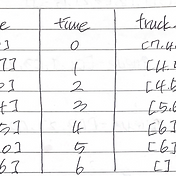 e time truck
] 0 [7.4
7] 1 [4.5
] 2 [4.5
4] 3 [5.6
5] 4 [6]
0] 5 [6]
6] 6 []